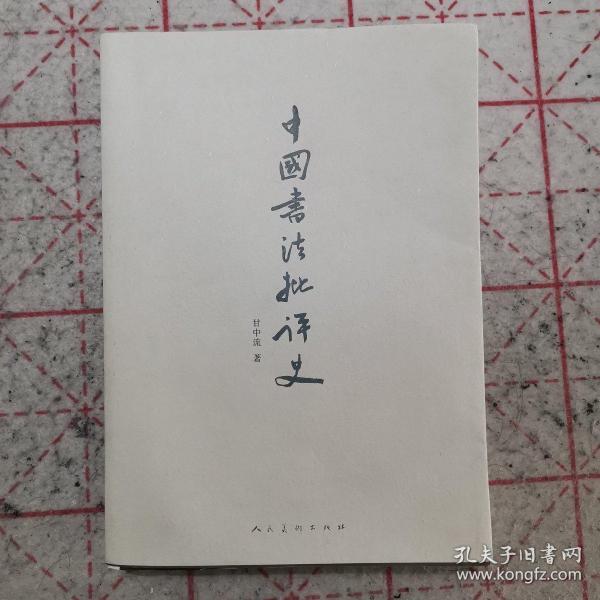 中國书法批评史
甘中流 著
人民美術出版社
孔夫子旧書网
www.kongfz.com